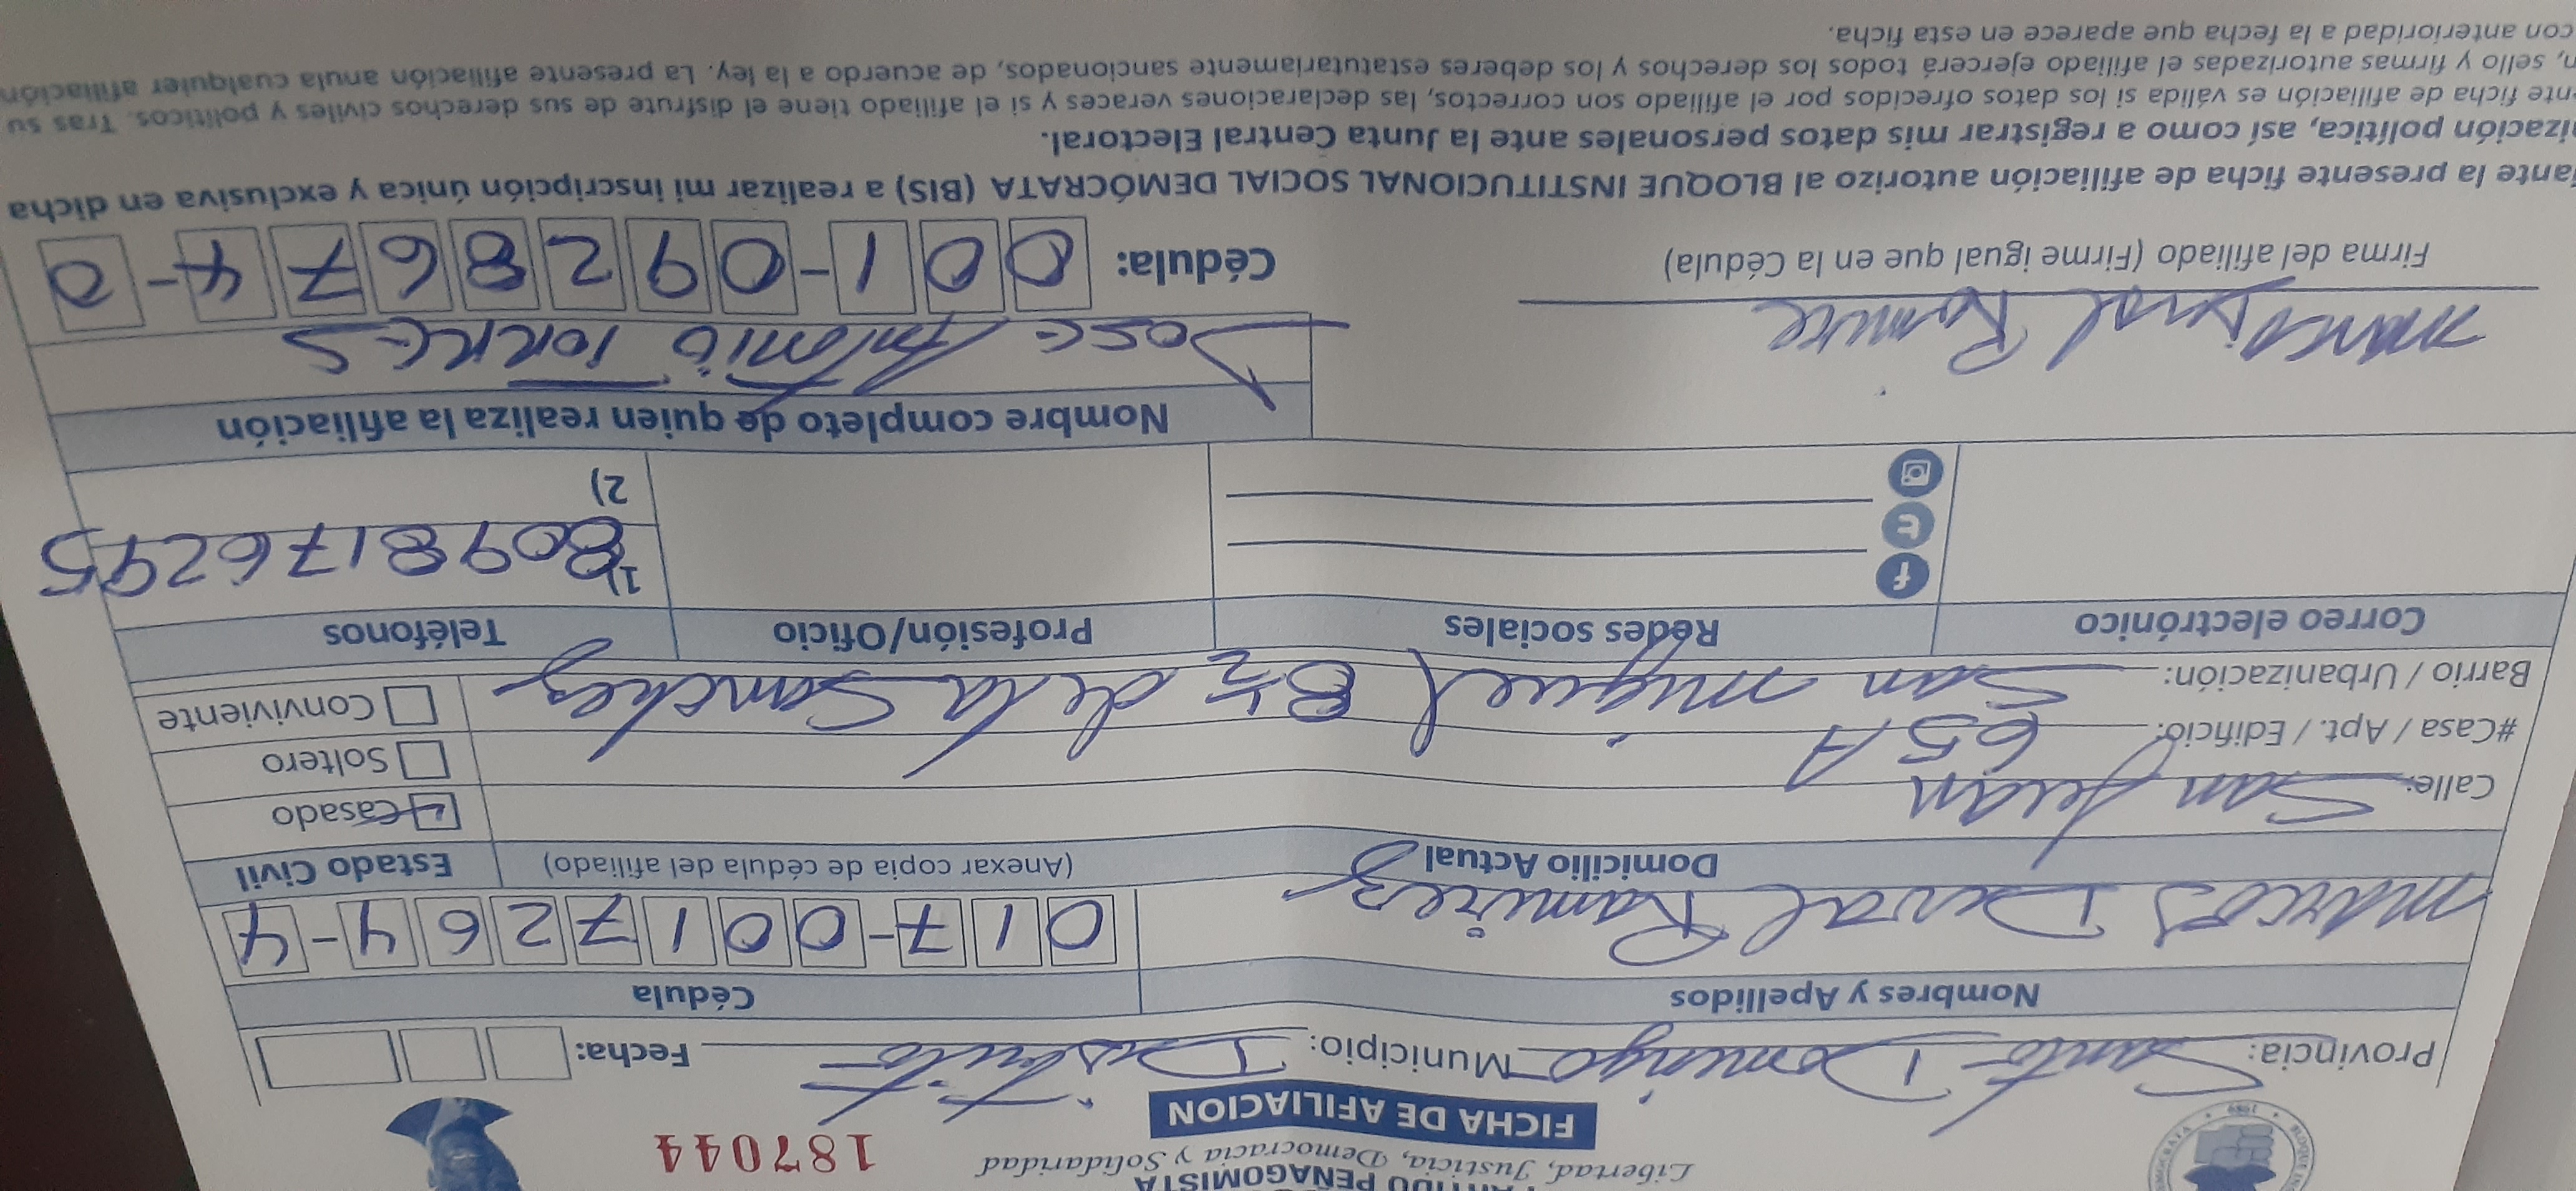 PARTIDO PEÑAGOMISTA
Libertad, Justicia, Democracia y Solidaridad
187044
FICHA DE AFILIACION
1989
Provincia: Santo Domingo Municipio: Distrito Fecha:
Nombres y Apellidos Cédula
Marcos Duval Ramirez 017-0017264-4
Domicilio Actual (Anexar copia de cédula del afiliado) Estado Civil
Calle: San Juan Casado
#Casa / Apt. / Edificio: 65 A Soltero
Barrio / Urbanización: San Miguel 8 ½ de la Sanchez Conviviente
Correo electrónico Redes sociales Profesión/Oficio Teléfonos
1) 8098176295
2)
Nombre completo de quien realiza la afiliación
Jose Antonio Torres
Firma del afiliado (Firme igual que en la Cédula) Cédula: 001-0928674-0
ante la presente ficha de afiliación autorizo al BLOQUE INSTITUCIONAL SOCIAL DEMÓCRATA (BIS) a realizar mi inscripción única y exclusiva en dicha
ización política, así como a registrar mis datos personales ante la Junta Central Electoral.
ente ficha de afiliación es válida si los datos ofrecidos por el afiliado son correctos, las declaraciones veraces y si el afiliado tiene el disfrute de sus derechos civiles y políticos. Tras su
n, sello y firmas autorizadas el afiliado ejercerá todos los derechos y los deberes estatutariamente sancionados, de acuerdo a la ley. La presente afiliación anula cualquier afiliación
con anterioridad a la fecha que aparece en esta ficha.